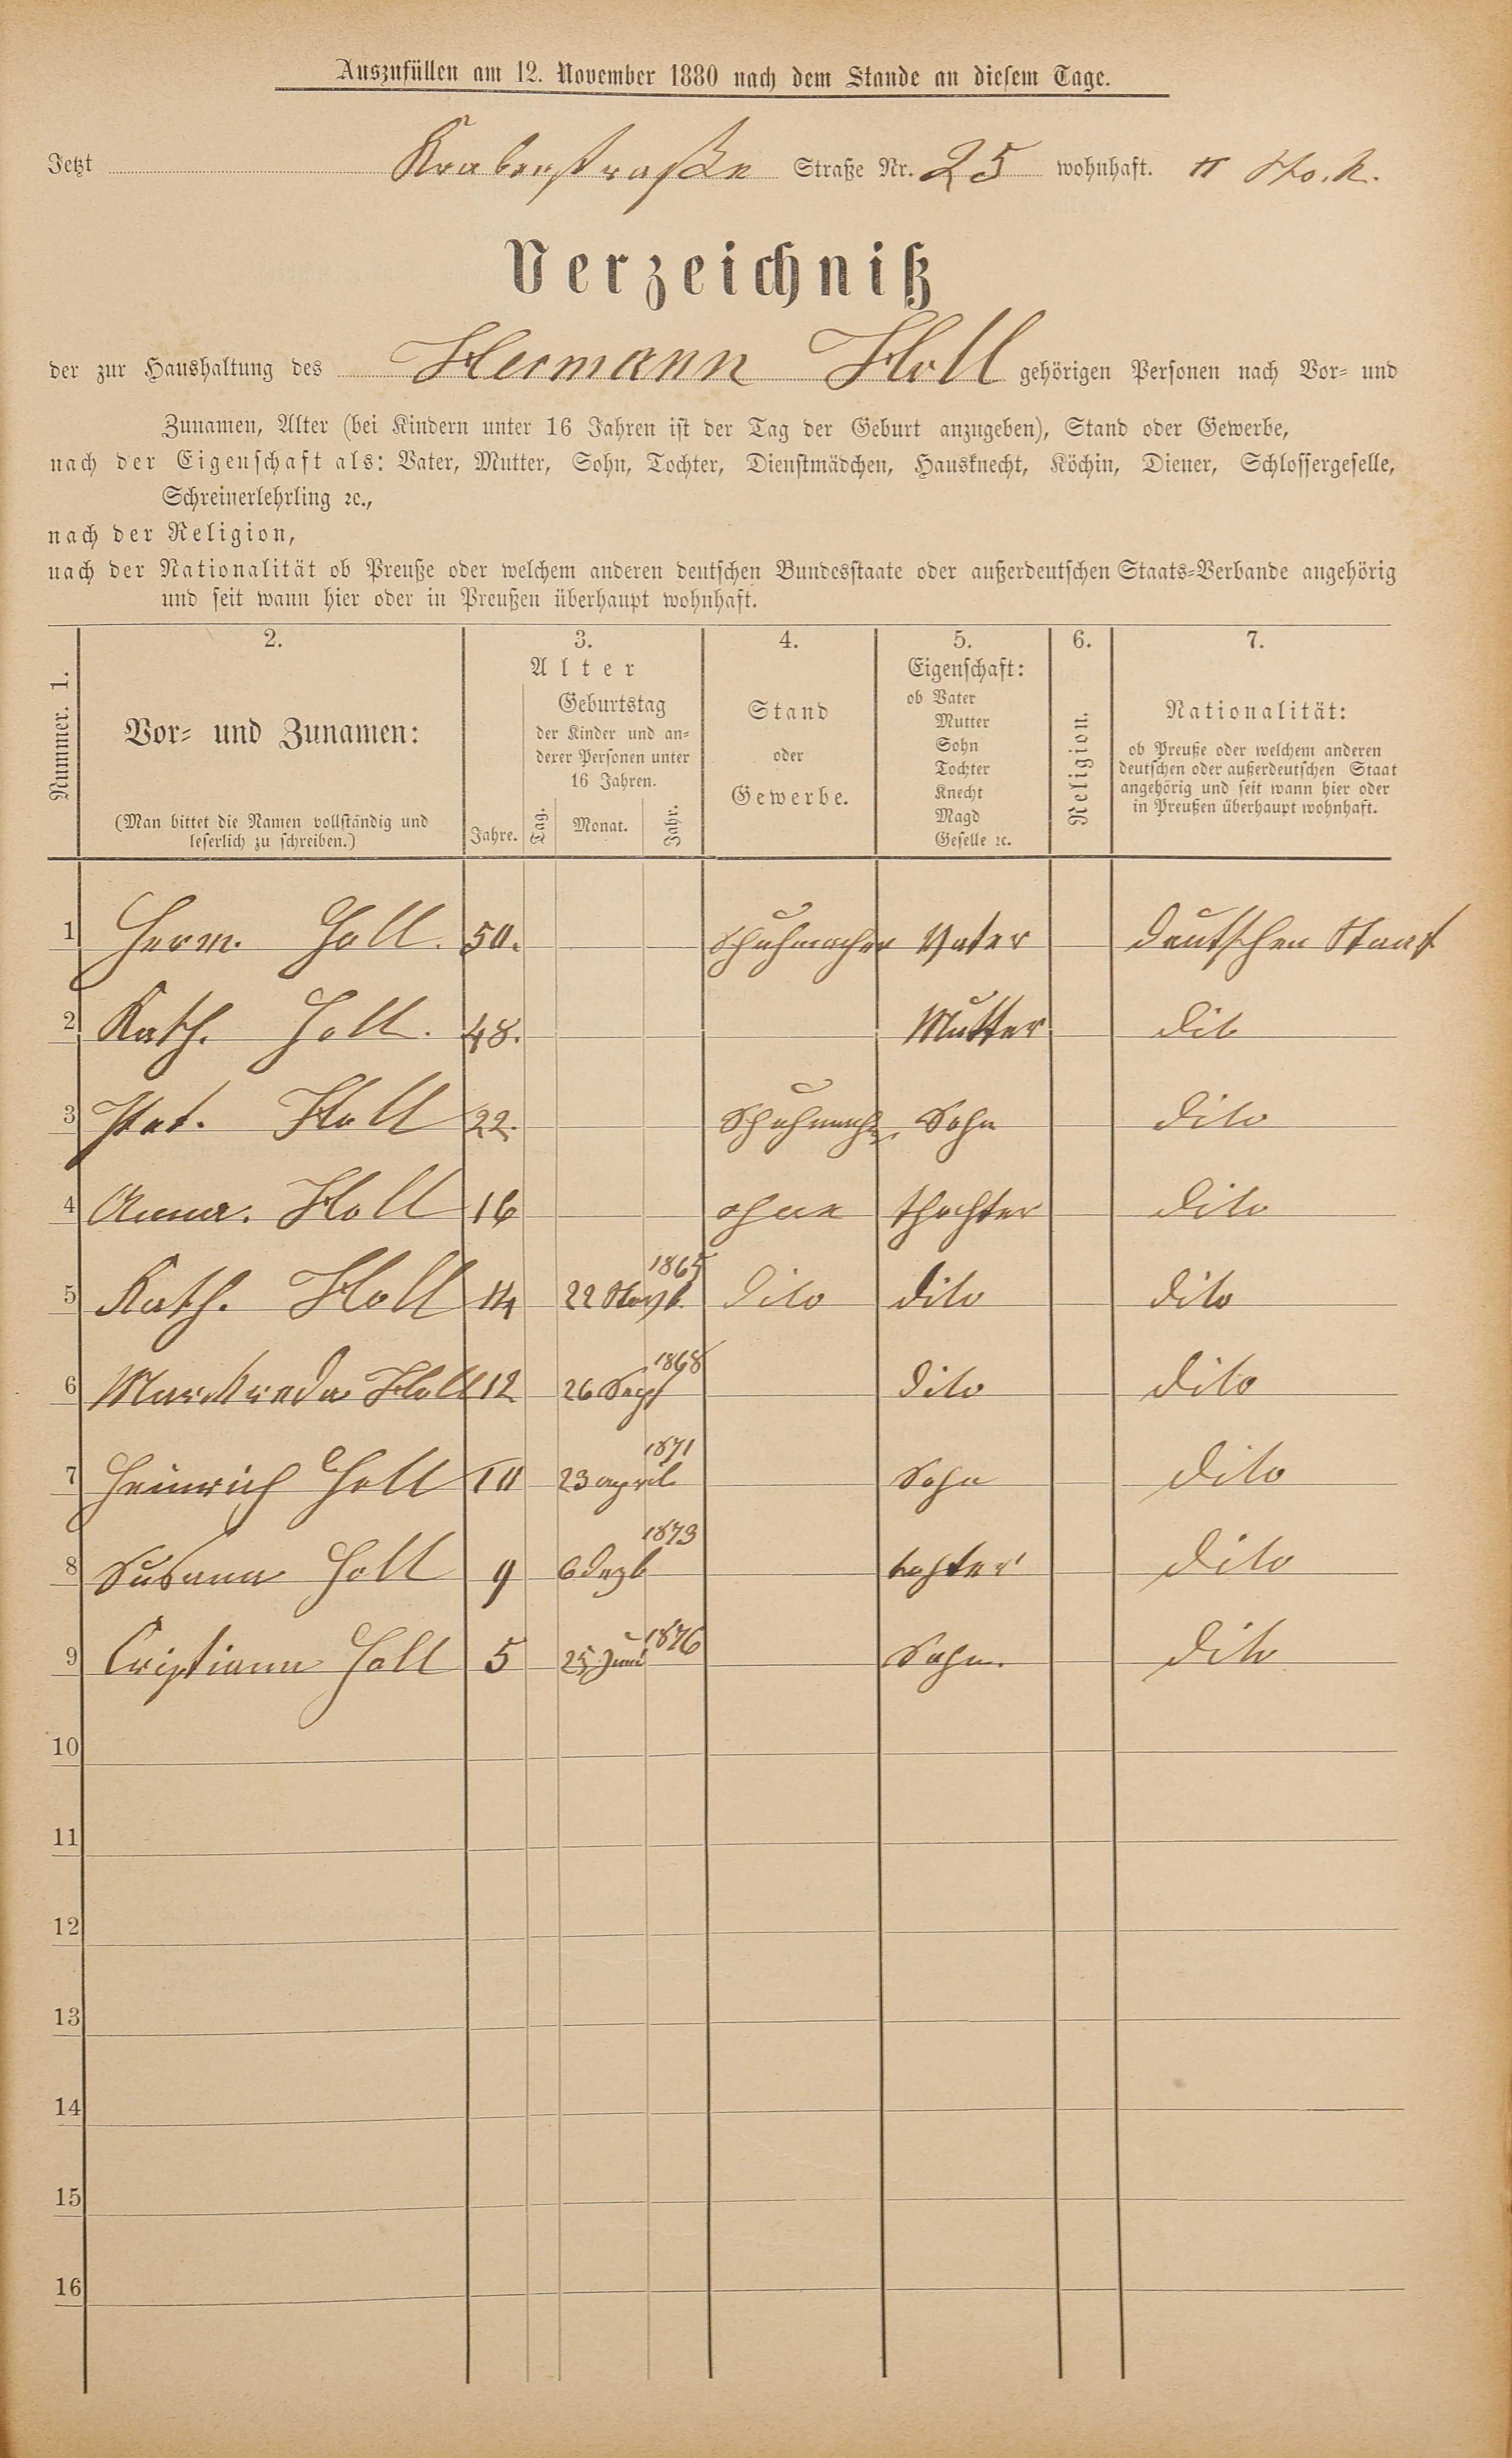 Auszufüllen am 12. November 1880 nach dem Stande an diesem Tage.
Jetzt Straße Nr. 25 wohnhaft. II
Verzeichniß
der zur Haushaltung des Hermann Holl gehörigen Personen nach Vor- und
Zunamen, Alter (bei Kindern unter 16 Jahren ist der Tag der Geburt anzugeben), Stand oder Gewerbe,
nach der Eigenschaft als: Vater, Mutter, Sohn, Tochter, Dienstmädchen, Hausknecht, Köchin, Diener, Schlossergeselle,
Schreinerlehrling ꝛc.,
nach der Religion,
nach der Nationalität ob Preuße oder welchem anderen deutschen Bundesstaate oder außerdeutschen Staats-Verbande angehörig
und seit wann hier oder in Preußen überhaupt wohnhaft.
Nummer. 1.
2.
Vor- und Zunamen:
(Man bittet die Namen vollständig und
leserlich zu schreiben.)
3.
Alter
Geburtstag
der Kinder und an-
derer Personen unter
16 Jahren.
Jahre. Tag. Monat. Jahr.
4.
Stand
oder
Gewerbe.
5.
Eigenschaft:
ob Vater
Mutter
Sohn
Tochter
Knecht
Magd
Geselle ꝛc.
6.
Religion.
7.
Nationalität:
ob Preuße oder welchem anderen
deutschen oder außerdeutschen Staat
angehörig und seit wann hier oder
in Preußen überhaupt wohnhaft.
1 Herm. Holl. 50. Schuhmacher Vater deutschen Staat
2 Kath. Holl. 48. Mutter dito
3 Holl 22. Schuhmacher Sohn dito
4 Anna. Holl 16 ohne thochter dito
5 Kath. Holl 14 22 1865 dito dito dito
6 Holl 12 26 Sept 1868 dito dito
7 Heinrich Holl 10 23 april 1871 Sohn dito
8 Susanna Holl 9 6 Dezb 1873 tochter dito
9 Cristiann Holl 5 25 Juni 1876 Sohn. dito
10
11
12
13
14
15
16